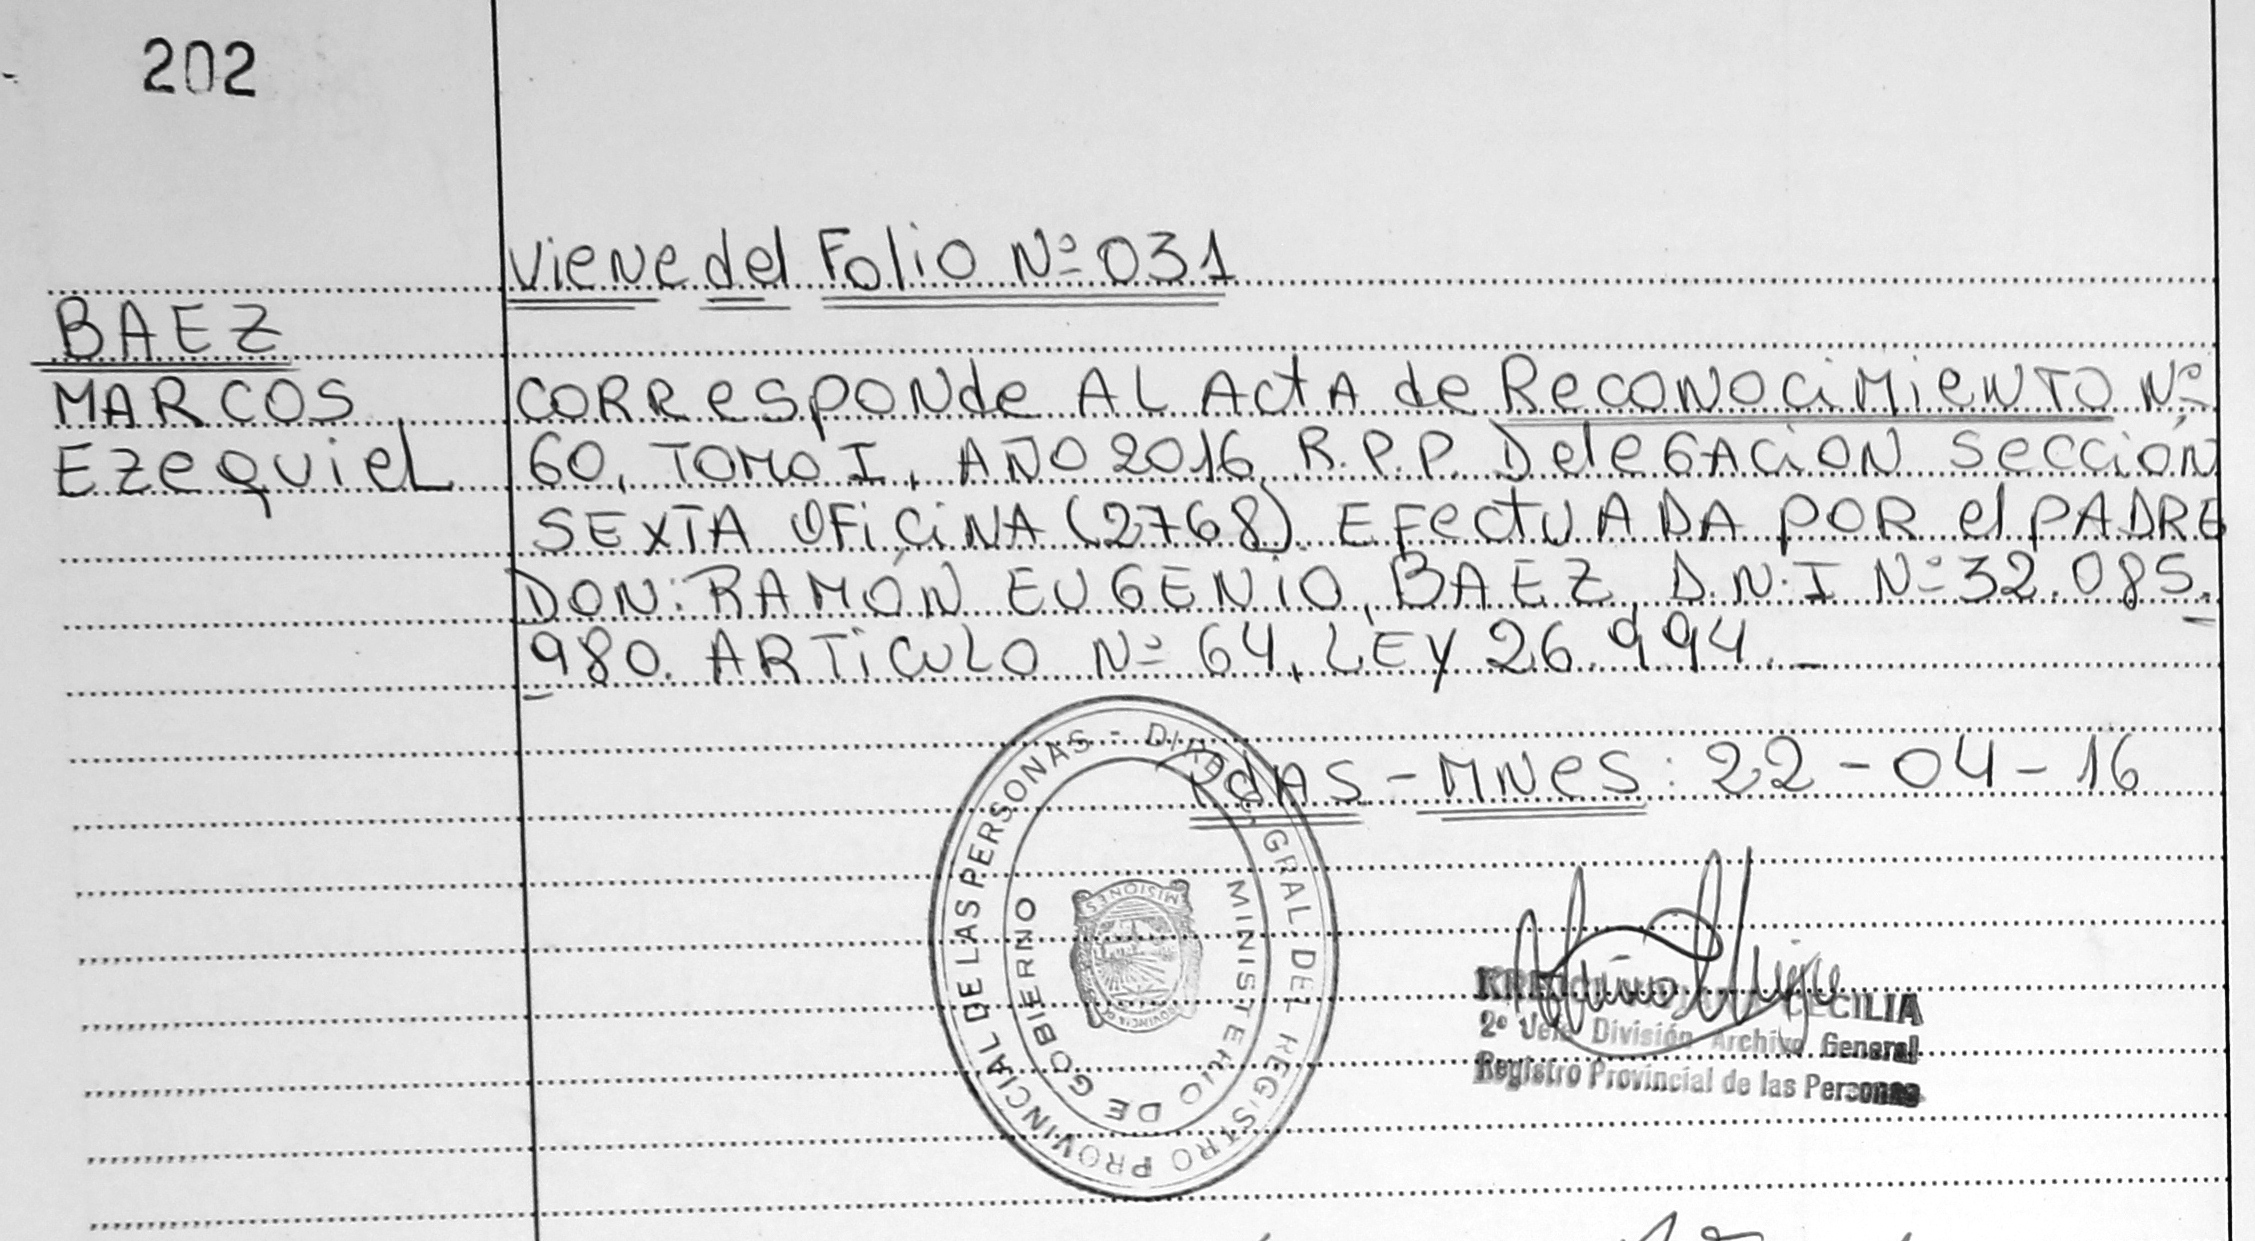 202
Viene del Folio Nº 031
BAEZ
MARCOS
Ezequiel
Corresponde AL ActA de Reconocimiento Nº
60, TOMO I, AÑO 2016 R.P.P. DelegaCion Sección
SEXTA OFiCiNA (2768). EFectuADA POR el PADRE
DON: RAMÓN EUGENiO, BAEZ, D.N.I Nº 32.085.
980. ARTiCULO Nº 64, LEY 26.994.-
PdAS - MNeS: 22-04-16
DIREC. GRAL. DEL REGISTRO PROVINCIAL DE LAS PERSONAS -
MINISTERIO DE GOBIERNO
PROVINCIA DE MISIONES
CECILIA
2º Jefe División Archivo General
Registro Provincial de las Personas